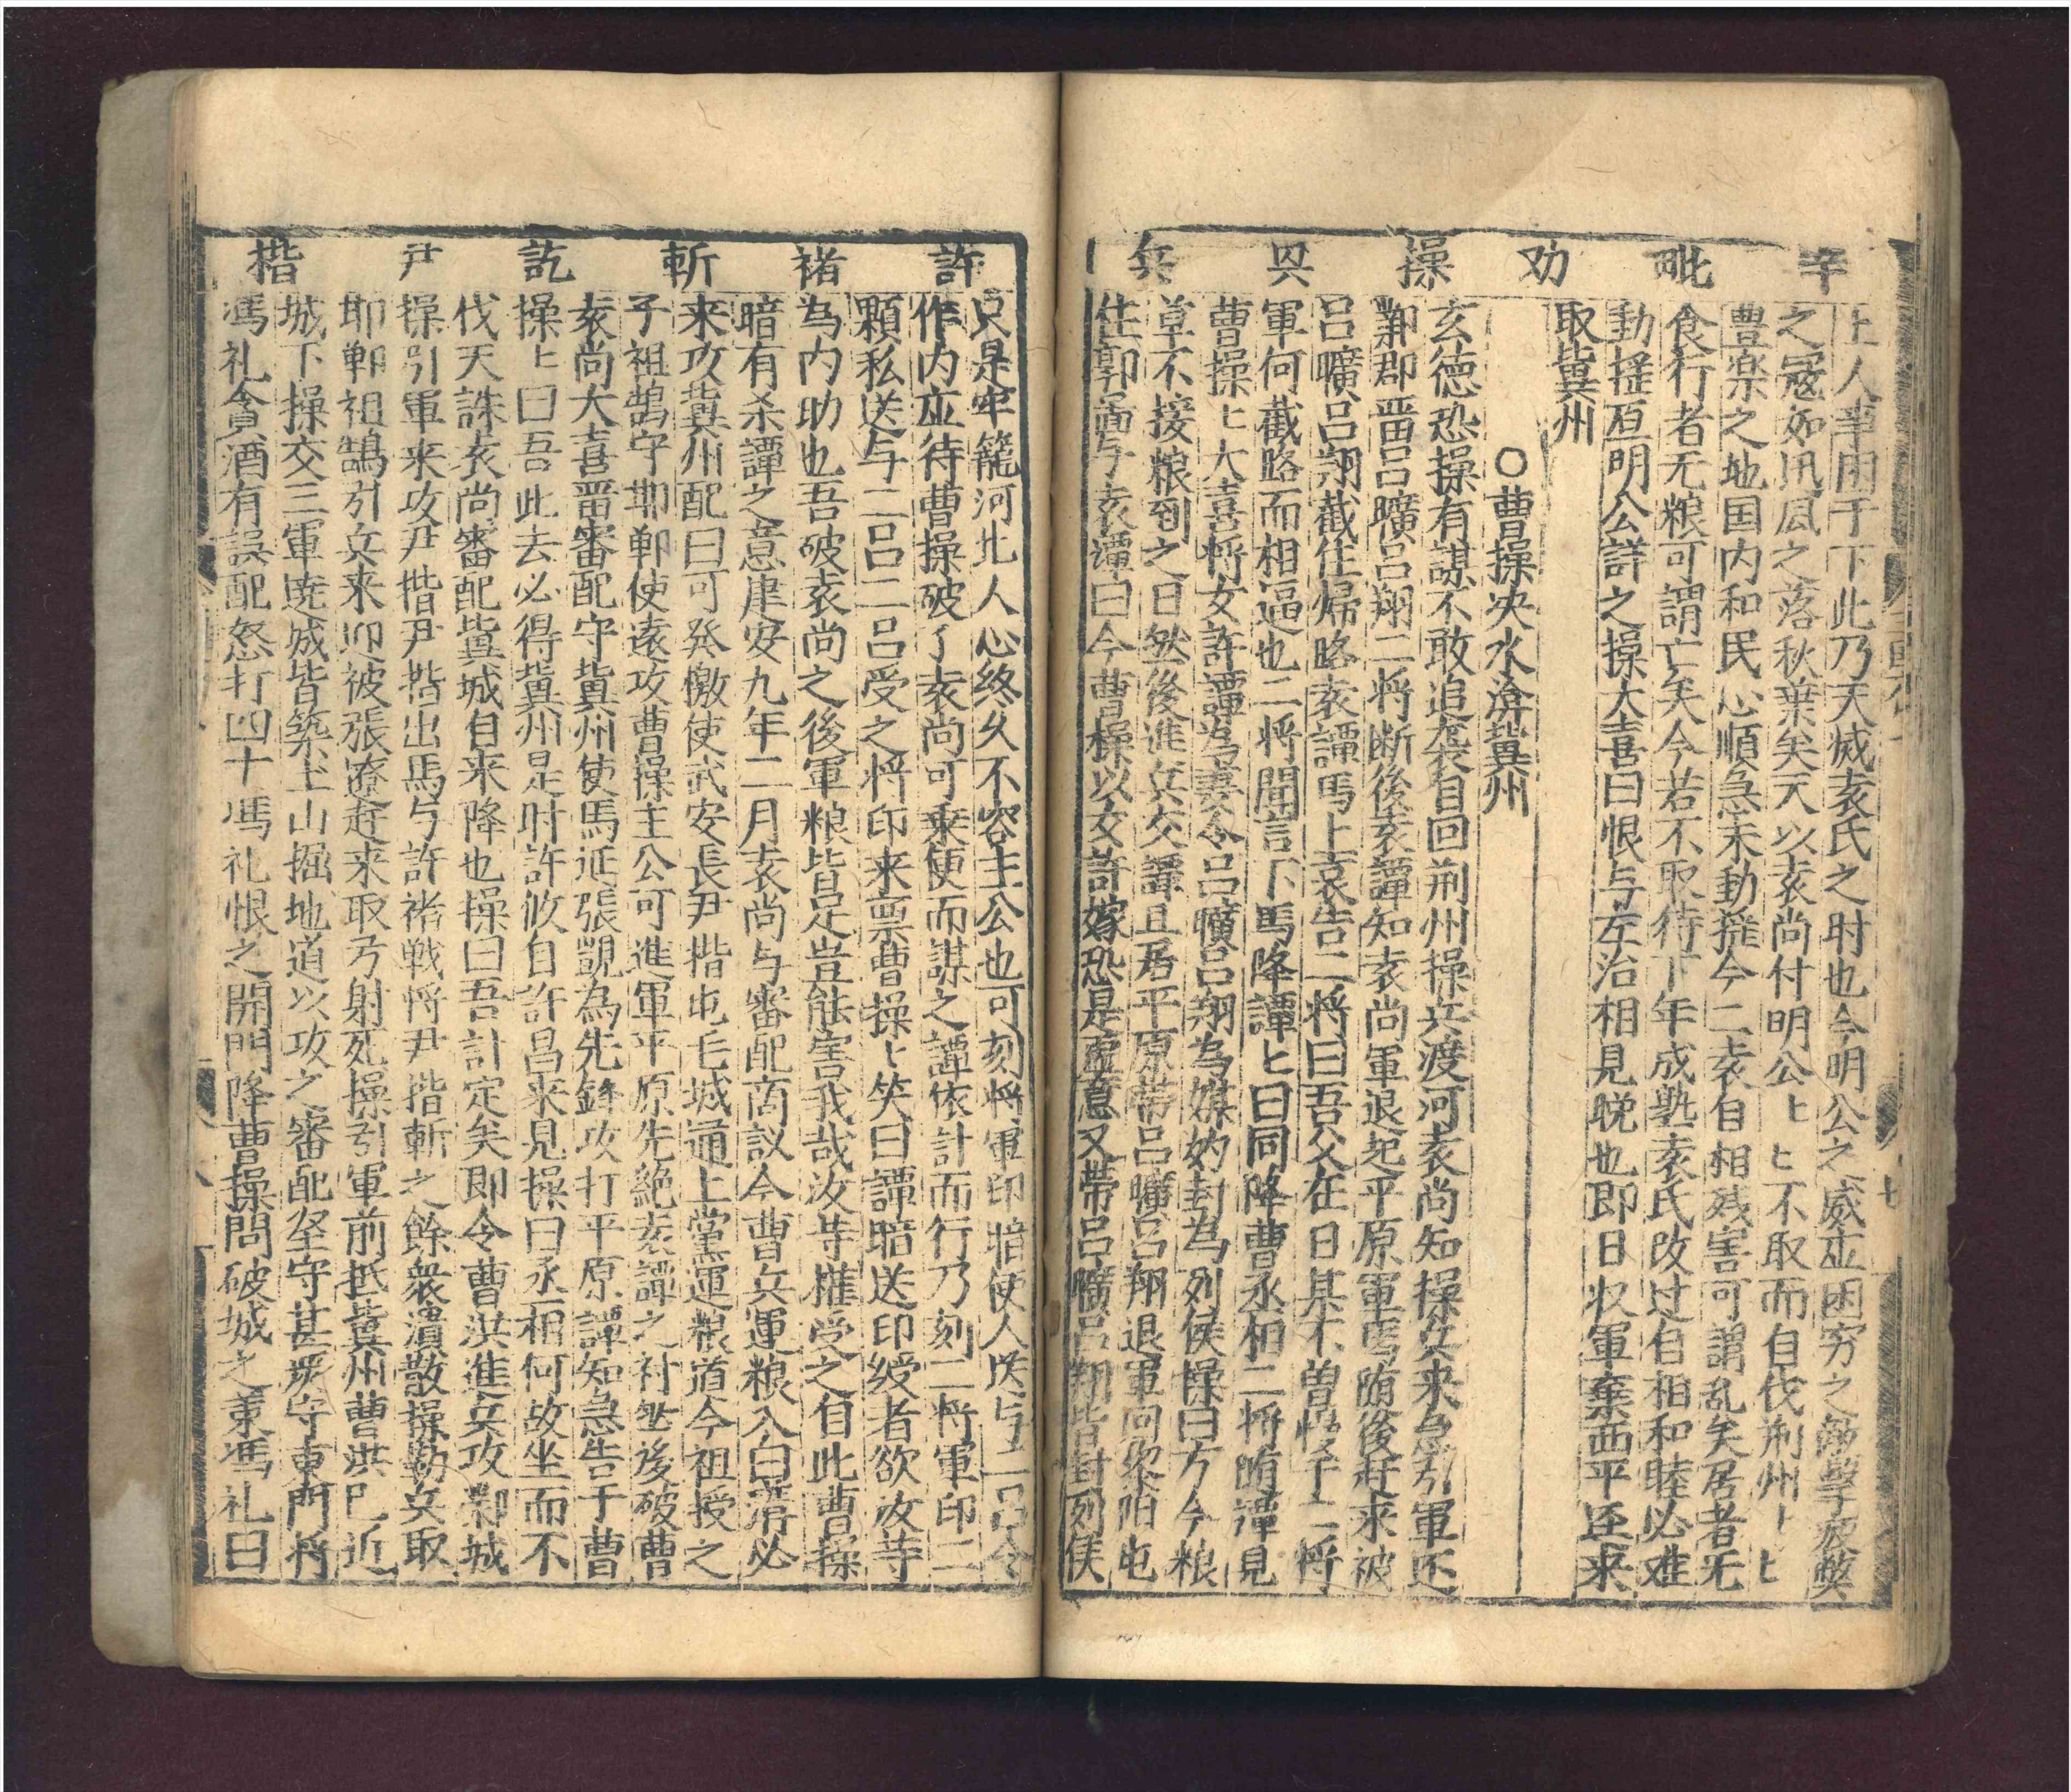 辛毗劝操興兵
上人事困于下此乃天威袁氏之时也今明公之威应困穷之敵擊疲獘
之寇如迅風之落秋葉矣天以袁尚付明公匕匕不取而自伐荊州匕匕
豊楽之地国内和民心順急未動揺今二袁自相残害可謂乱矣居者无
食行者无粮可謂亡矣今若不取待下年成熟袁氏改过自相和睦必难
動揺亙明公詳之操大喜曰恨与左治相見晚也即日收軍棄西平还来
取冀州
○曹操决水渰冀州
玄德恐操有謀不敢追袭自回荊州操兵渡河袁尚知操兵来急引軍还
鄴郡畱吕曠吕翔二将断後袁譚知袁尚軍退起平原軍馬随後赶来被
吕曠吕翔截住帰路袁譚馬上哀告二将曰吾父在日某不曽怪子二将
軍何截路而相逼也二将聞言下馬降譚匕曰同降曹丞相二将随譚見
曹操匕大喜将女許譚为妻令吕曠吕翔為媒妁封為列侯操曰方今粮
草不接粮到之日然後進兵交譚且居平原帯吕曠吕翔退軍回黎阳屯
住郭啚与袁譚曰今曹操以女許嫁恐是虚意又帯吕曠吕翔皆封列侯
許褚斬訖尹楷
只是牢籠河北人心終久不容主公也可刻将軍印暗使人送与二吕令
作内应待曹操破了袁尚可乗便而謀之譚依計而行乃刻二将軍印二
顆私送与二吕二吕受之将印来禀曹操匕笑曰譚暗送印綬者欲汝等
為内助也吾破袁尚之後軍粮皆足豈能害我哉汝等權受之自此曹操
暗有杀譚之意建安九年二月袁尚与審配商议今曹兵運粮入白溝必
来攻冀州配曰可発檄使武安長尹楷屯毛城通上黨運粮道令祖授之
子祖鵠守邯鄲使遠攻曹操主公可進軍平原先絶袁譚之村然後破曹
袁尚大喜畱審配守冀州使馬延張覬為先鋒攻打平原譚知急告于曹
操匕曰吾此去必得冀州是时許攸自許昌来見操曰丞相何故坐而不
伐天誅袁尚審配冀城自来降也操曰吾計定矣即令曹洪進兵攻鄴城
操引軍来攻尹楷尹楷出馬与許褚戦将尹楷斬之餘衆潰散操勒兵取
邯鄲祖鵠引兵来迎被張遼赶来取弓射死操引軍前抵冀州曹洪已近
城下操交三軍遶城皆築土山掘地道以攻之審配坚守甚嚴守東門将
馮礼貪酒有誤配怒打四十馮礼恨之開門降曹操問破城之策馮礼曰